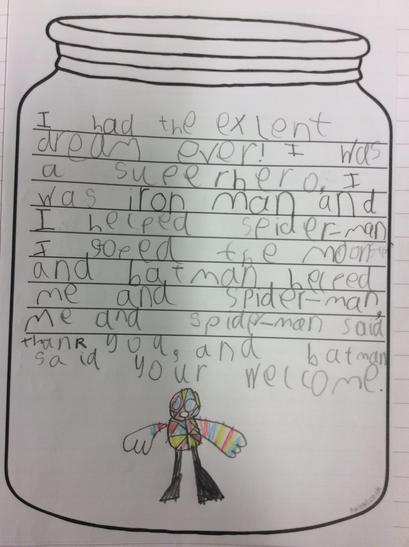 I had the exlent
dream ever! I was
a sueerhero. I
was iron man and
I helped spider-man
I soped the
and batman helped
me and spider-man,
me and spider-man said
thank you, and batman
said your welcome.